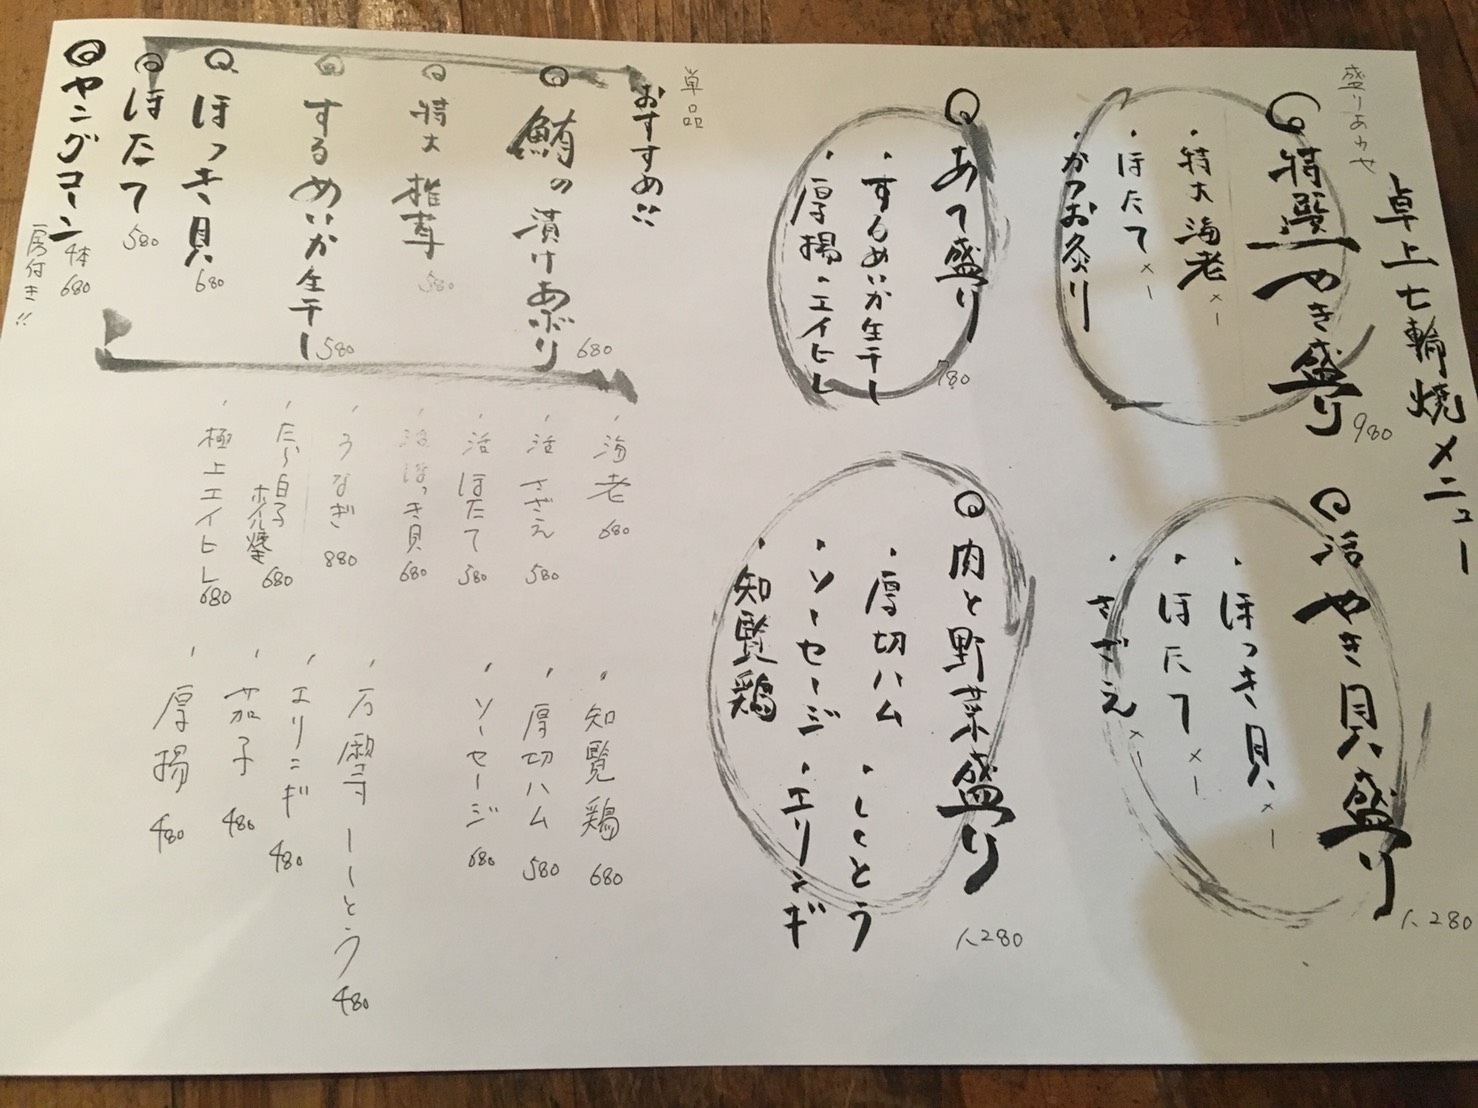 卓上七輪焼メニュー
盛りあわせ
特選やき盛り 980
・特大海老 ×1
・ほたて ×1
・かつお炙り
活やき貝盛り 1,280
・ほっき貝 ×1
・ほたて ×1
・さざえ ×1
あて盛り 780
・するめいか生干し
・厚揚・エイヒレ
肉と野菜盛り 1,280
・厚切ハム ・ししとう
・ソーセージ・エリンギ
・知覧鶏
単品
おすすめ!!
鮪の漬けあぶり 680
特大椎茸 580
するめいか生干し 580
ほっき貝 680
ほたて 580
ヤングコーン 4本 680
房付き!!
・海老 680
・活さざえ 580
・活ほたて 580
・活ほっき貝 680
・うなぎ 880
・たら白子ホイル焼き 680
・極上エイヒレ 680
・知覧鶏 680
・厚切ハム 580
・ソーセージ 680
・万願寺ししとう 480
・エリンギ 480
・茄子 480
・厚揚 480